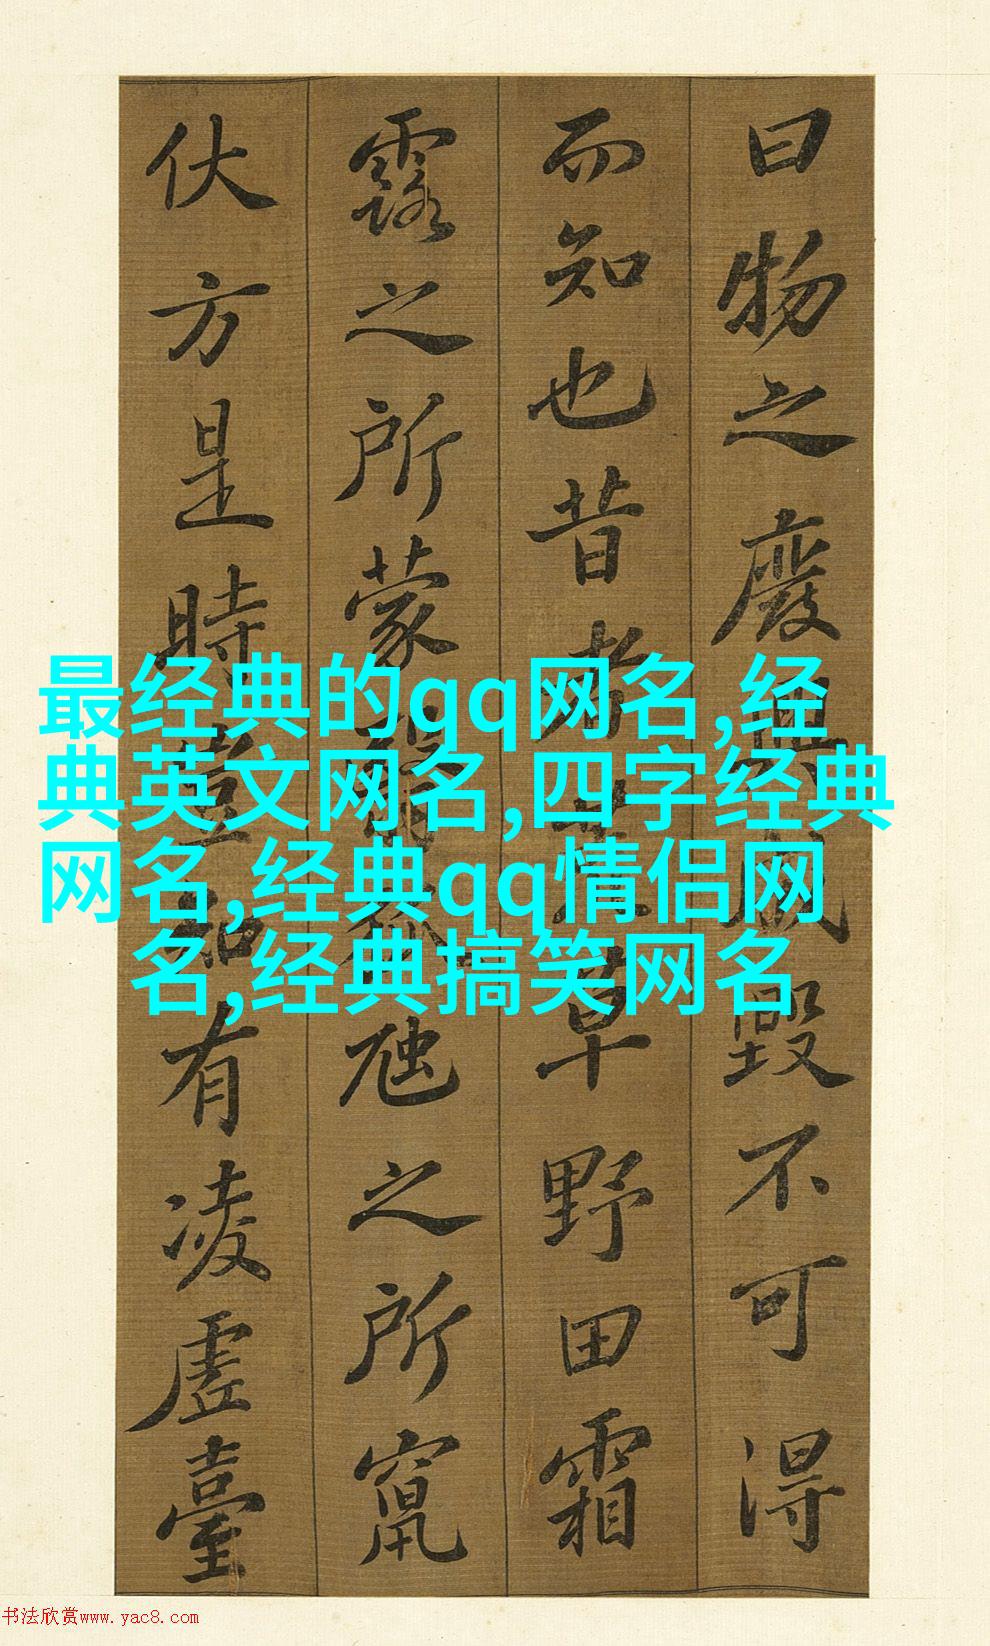 曰物之廢興成毀不可得
而知也昔者荒草野田霜
露之所蒙翳狐虺之所竄
伏方是時豈知有凌虛臺
最经典的qq网名,经
典英文网名,四字经典
网名,经典qq情侣网
名,经典搞笑网名
书法欣赏www.yac8.com